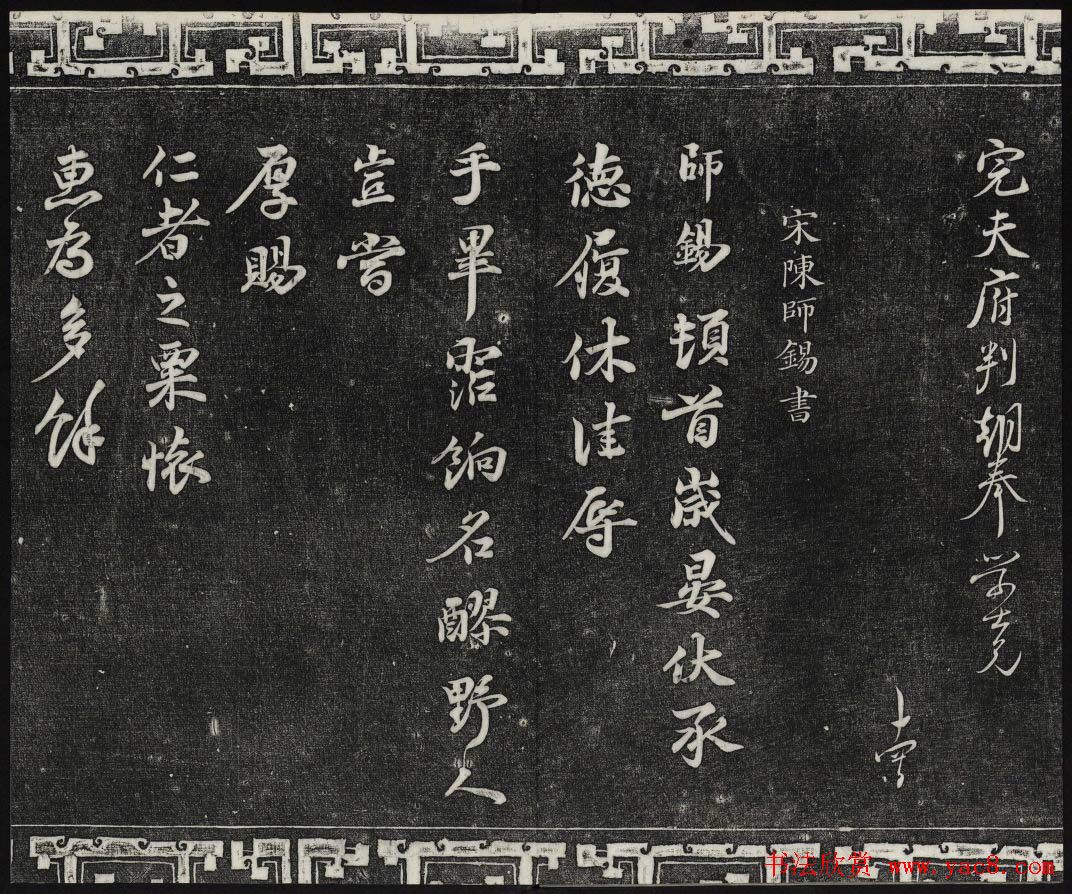 完夫府判朝奉学士兄
宋陳師錫書
師錫頓首歲晏伏承
德履休佳辱
手畢寵餉名醪野人
豈嘗
厚賜
仁者之粟懷
惠為多餘
书法欣赏 www.yac8.com